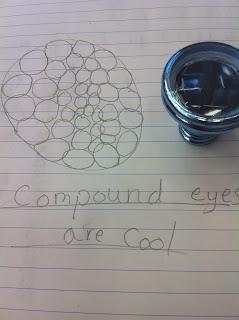 Compound eyes
are cool